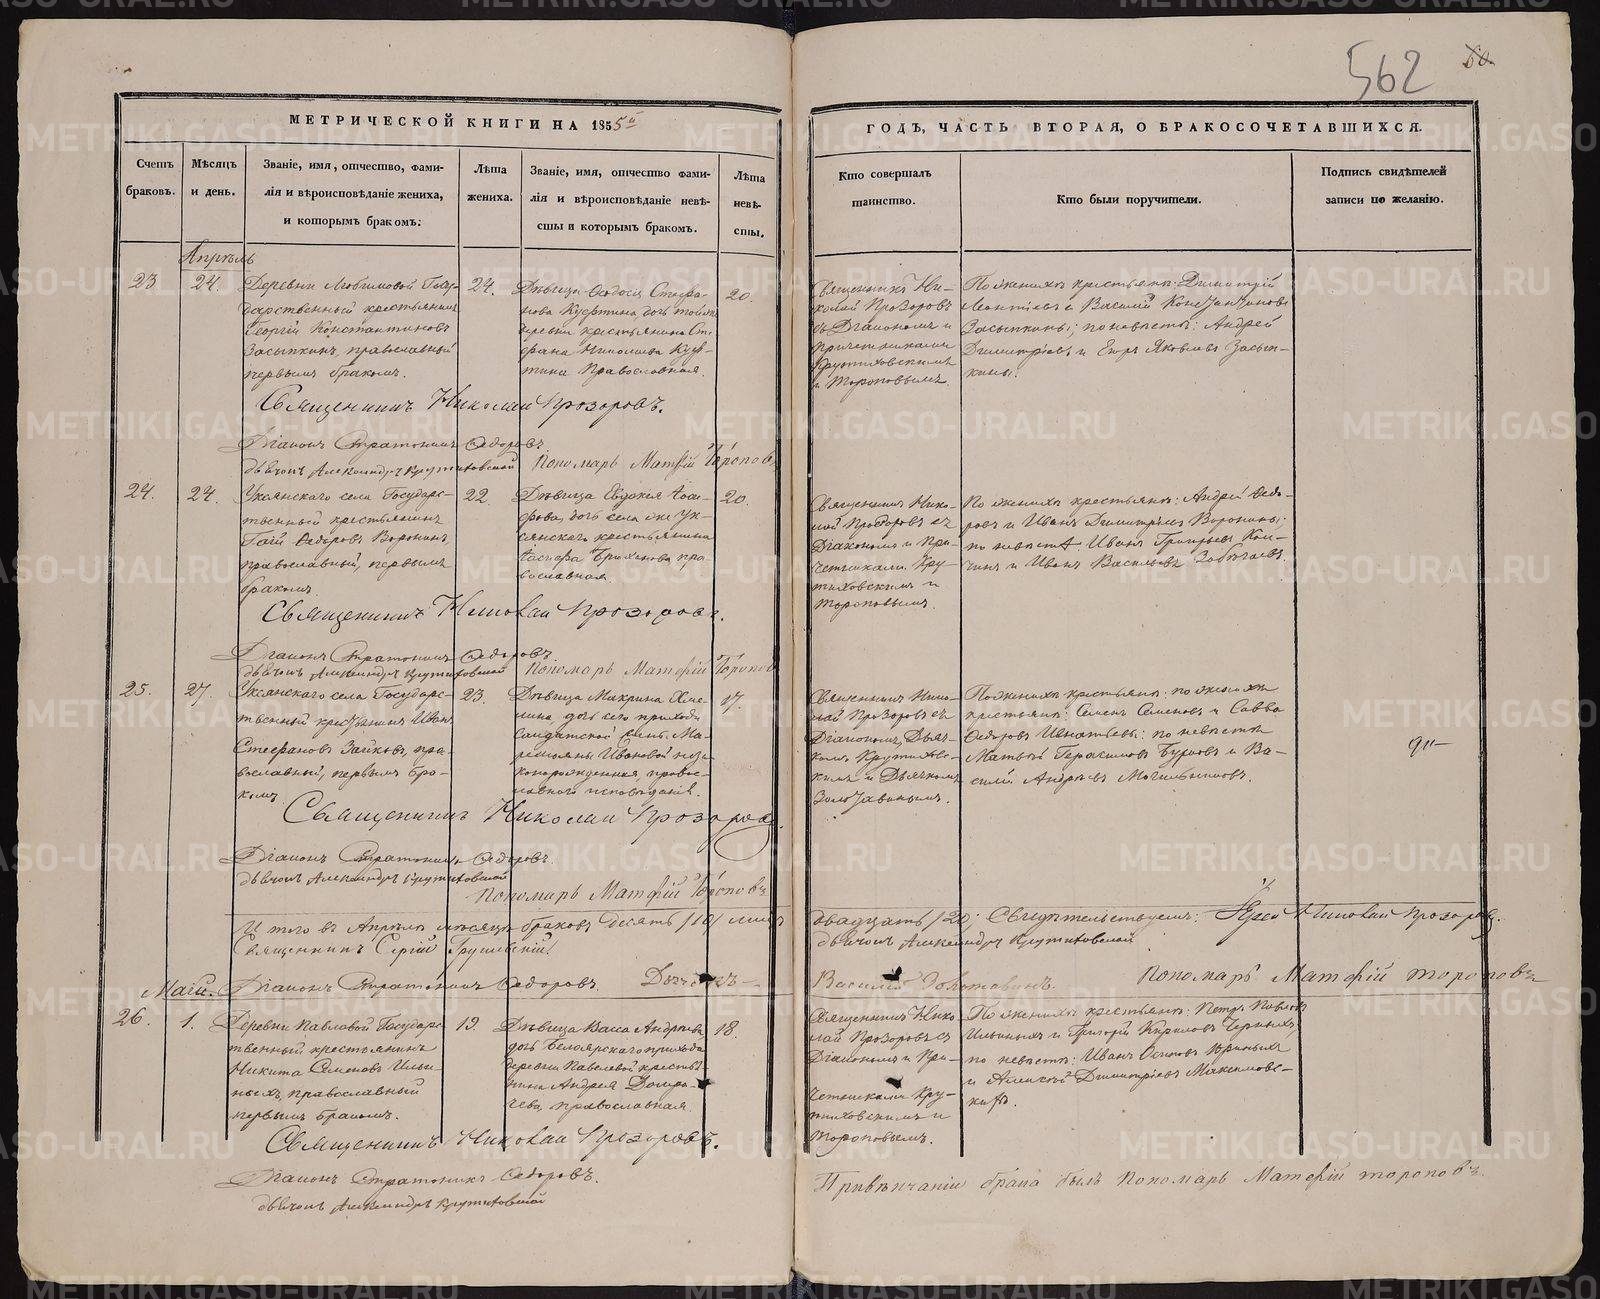 562
60.
МЕТРИЧЕСКОЙ КНИГИ НА 1855й
ГОДЪ, ЧАСТЬ ВТОРАЯ, О БРАКОСОЧЕТАВШИХСЯ.
Счетъ браковъ.
Мѣсяцъ и день.
Званіе, имя, отчество, фами-
лія и вѣроисповѣданіе жениха,
и которымъ бракомъ.
Лѣта
жениха.
Званіе, имя, отчество фами-
лія и вѣроисповѣданіе невѣ-
сты и которымъ бракомъ.
Лѣта
невѣ-
сты.
Кто совершалъ
таинство.
Кто были поручители.
Подпись свидѣтелей
записи по желанію.
Апрѣль
23
24.
Деревни Любимовой Госу-
дарственный крестьянинъ
Георгій Константиновъ
Засыпкинъ, православный
первымъ бракомъ.
24.
Дѣвица Ѳеодосія Стефа-
нова дочь той же
деревни крестьянина Сте-
фана Николаева
православная.
20.
Священникъ Ни-
колай Прозоровъ
съ Діакономъ и
причетниками
Крутиховскимъ
и Тороповымъ.
По женихѣ крестьяне: Димитрій
Леонтіевъ и Василій Константиновъ
Засыпкины; по невѣстѣ: Андрей
Димитріевъ и Егоръ Яковлевъ Засып-
кины.
Священникъ Николай Прозоровъ.
Діаконъ Стратоникъ Ѳедоровъ
дьячокъ Александръ Крутиховской
Пономарь Матфій Тороповъ
24.
24.
Уксянского села Государс-
твенный крестьянинъ
Гаій Ѳедоровъ Воронинъ,
православный, первымъ
бракомъ.
22
Дѣвица Евдокія Іоси-
фова, дочь села же Ук-
сянскаго крестьянина
Іосифа пра-
вославная
20.
Священникъ Нико-
лай Прозоровъ съ
Діакономъ и При-
четниками Кру-
тиховскимъ и
Тороповымъ.
По женихѣ крестьяне: Андрей Ѳедо-
ровъ и Иванъ Димитріевъ Воронины;
по невѣстѣ Иванъ Григорьевъ
и Иванъ Васильевъ
Священникъ Николай Прозоровъ.
Діаконъ Стратоникъ Ѳедоровъ
дьячокъ Александръ Крутиховской
Пономарь Матфій Тороповъ
25.
27.
Уксянскаго села Государс-
твенный крестьянинъ Иванъ
Стефановъ Зайковъ, пра-
вославный, первымъ бра-
комъ
23.
Дѣвица Макрина
дочь сего прихода
солдатской Ма-
Ивановой неза-
коннорожденная, правос-
лавнаго исповѣданія.
17.
Священникъ Нико-
лай Прозоровъ съ
Діакономъ, Дьяч-
комъ Крутиховс-
кимъ и Дьячкомъ
Золотавинымъ.
По женихѣ крестьяне: по женихѣ
крестьяне: Семенъ Семеновъ и Савва
Ѳедоровъ Игнатьевы: по невѣстѣ
Матвѣй Герасимовъ и Ва-
силій Андреевъ Могильниковъ.
Священникъ Николай Прозоровъ
Діаконъ Стратоникъ Ѳедоровъ.
дьячокъ Александръ Крутиховской
Пономарь Матфій Тороповъ
Итого въ Апрѣлѣ мѣсяцѣ браковъ десять /10/ лицъ
двадцать /20/ Свидѣтельствуемъ: Іерей Николай Прозоровъ.
Священникъ Сергій
дьячокъ Александръ Крутиховской
Діаконъ Стратоникъ Ѳедоровъ. Дьячокъ
Василій Золотавинъ. Пономарь Матфій Тороповъ
Маій.
26.
1.
Деревни Павловой Государс-
твенный крестьянинъ
Никита Семеновъ Ильи-
ныхъ, православный
первымъ бракомъ.
19.
Дѣвица Васса Андреева
дочь Белоярскаго прихода
деревни Павловой кресть-
янина Андрея
православная.
18.
Священникъ Нико-
лай Прозоровъ съ
Діакономъ и При-
четниками Кру-
тиховскимъ и
Тороповымъ.
По женихѣ крестьяне: Петръ
Ильиныхъ и Григорій Кириловъ Черныхъ,
по невѣстѣ: Иванъ Осиповъ
и Алексѣй Димитріевъ Максимовс-
кихъ.
Священникъ Николай Прозоровъ.
Діаконъ Стратоникъ Ѳедоровъ.
дьячокъ Александръ Крутиховской
При вѣнчаніи брака былъ Пономарь Матфій Тороповъ.
METRIKI.GASO-URAL.RU